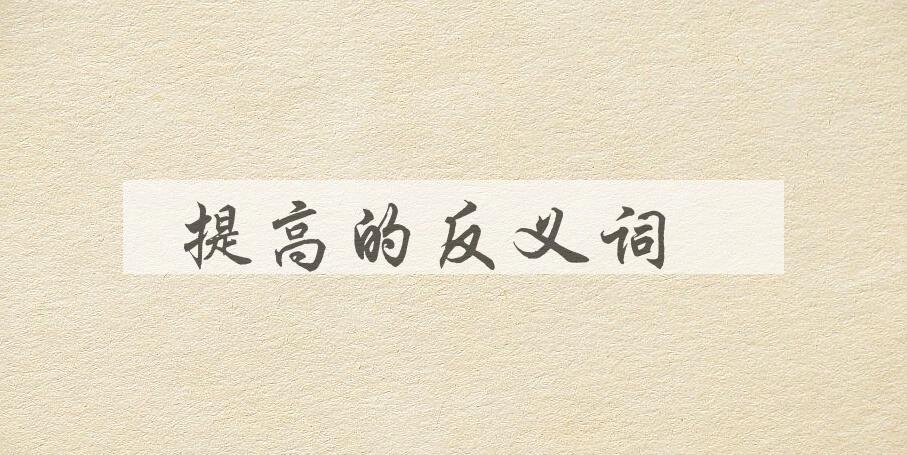 提高的反义词